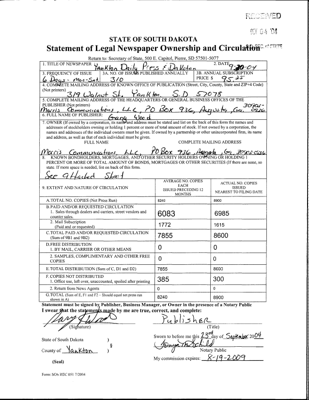 RECEIVED
STATE OF SOUTH DAKOTA
Statement of Legal Newspaper Ownership and Circulation
Return to: Secretary of State, 500 E. Capitol, Pierre, SD 57501-5077
1. TITLE OF NEWSPAPER Yankton Daily Press & Dakotan 2. DATE
3. FREQUENCY OF ISSUE 3A. NO. OF ISSUES PUBLISHED ANNUALLY 3B. ANNUAL SUBSCRIPTION
6 Days - Mon-Sat 310 PRICE $ 95.25
4. COMPLETE MAILING ADDRESS OF KNOWN OFFICE OF PUBLICATION (Street, City, County, State and ZIP+4 Code)
(Not printers) 319 Walnut St, Yankton S.D 57078
5. COMPLETE MAILING ADDRESS OF THE HEADQUARTERS OR GENERAL BUSINESS OFFICES OF THE
PUBLISHER (Not printers)
Morris Communications, LLC, PO Box 936, Augusta, Ga.
6. FULL NAME OF PUBLISHER: Gary Wood
7. OWNER (If owned by a corporation, its name and address must be stated and list on the back of this form the names and
addresses of stockholders owning or holding 1 percent or more of total amount of stock. If not owned by a corporation, the
names and addresses of the individual owners must be given. If owned by a partnership or other unincorporated firm, its name
and address, as well as that of each individual must be given.
FULL NAME COMPLETE MAILING ADDRESS
Morris Communication, LLC, PO Box 936 Augusta, Ga,
8. KNOWN BONDHOLDERS, MORTGAGES, AND OTHER SECURITY HOLDERS OWNING OR HOLDING 1
PERCENT OR MORE OF TOTAL AMOUNT OF BONDS, MORTGAGES OR OTHER SECURITIES (If there are none, so
state. If more space is needed, list on back of this form.
See attached Sheet
9. EXTENT AND NATURE OF CIRCULATION
AVERAGE NO. COPIES
EACH
ISSUED PRECEDING 12
MONTHS
ACTUAL NO. COPIES
ISSUED
NEAREST TO FILING DATE
A. TOTAL NO. COPIES (Net Press Run) 8240 8900
B. PAID AND/OR REQUESTED CIRCULATION
1. Sales through dealers and carriers, street vendors and
counter sales. 6083 6985
2. Mail Subscription
(Paid and or requested) 1772 1615
C. TOTAL PAID AND/OR REQUESTED CIRCULATION
(Sum of 9B1 and 9B2) 7855 8600
D. FREE DISTRIBUTION
1. BY MAIL, CARRIER OR OTHER MEANS 0 0
2. SAMPLES, COMPLIMENTARY AND OTHER FREE
COPIES 0 0
E. TOTAL DISTRIBUTION (Sum of C, D1 and D2) 7855 8600
F. COPIES NOT DISTRIBUTED
1. Office use, left over, unaccounted, spoiled after printing 385 300
2. Return from News Agents 0 0
G. TOTAL (Sum of E, F1 and F2 - Should equal net press run
shown in A) 8240 8900
Statement must be signed by Publisher, Business Manager, or Owner in the presence of a Notary Public
I swear that the statements made by me are true, correct, and complete:
Publisher
(Signature) (Title)
State of South Dakota )
Sworn to before me this 23rd day of September 2004
County of Yankton )
Notary Public
(Seal) My commission expires: 8-19-2009